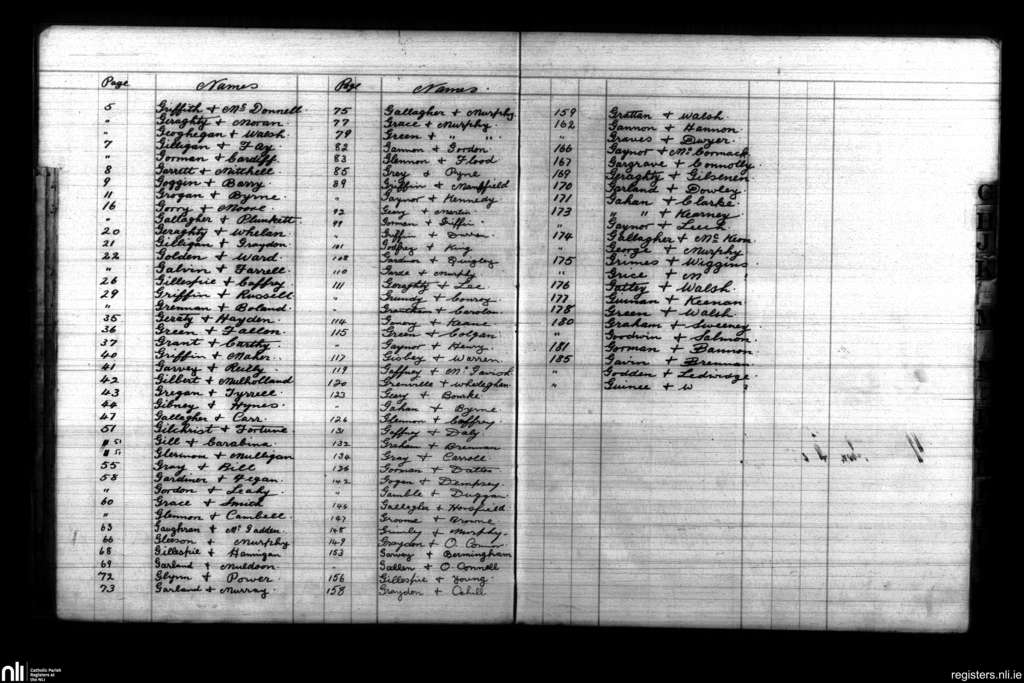 Page Names
5 Griffith + McDonnell
" Geraghty + Moran
" Geoghegan + Walsh
7 Gilligan + Fay
" Gorman + Cardiff
8 Garrett + Mitchell
9 Goggin + Barry
11 Grogan + Byrne
16 Gorry + Moore
" Gallagher + Plunkett
20 Geraghty + Whelan
21 Gilligan + Graydon
22 Golden + Ward
" Galvin + Farrell
26 Gillespie + Caffrey
29 Griffin + Russell
" Grennan + Boland
35 Geraty + Hayden
36 Green + Fallon
37 Grant + Carthy
40 Griffin + Maher
41 Garvey + Reilly
42 Gilbert + Mulholland
43 Gregan + Tyrrell
44 Gibney + Hynes
47 Gallagher + Carr
51 Gilchrist + Fortune
" 51 Gill + Carabina
" 51 Glennon + Mulligan
55 Gray + Bill
58 Gardiner + Fegan
" Gordon + Leahy
60 Grace + Smith
" Glennon + Cambell
63 Gaughran + McFadden
66 Gleeson + Murphy
68 Gillespie + Hannigan
69 Garland + Muldoon
72 Glynn + Power
73 Garland + Murray
Page Names
75 Gallagher + Murphy
77 Grace + Murphy
79 Green + " "
82 Gannon + Gordon
83 Glennon + Flood
85 Grey + Pyne
89 Griffin + Mansfield
" Gaynor + Kennedy
92 Geary + Martin
99 Gorman + Griffin
" Griffin +
101 Godfrey + King
108 Gardner + Quigley
110 Garde + Murphy
111 Geraghty + Lee
" Grundy + Conroy
" + Carolan
114 + Keane
115 Green + Colgan
" Gaynor + Henry
117 Gisby + Warren
119 Gaffney + Mc
120 Grenville +
123 Geary + Bourke
" Gahan + Byrne
126 Glennon + Caffrey
131 Gaffney + Daly
132 Graham + Brennan
134 Gray + Carroll
136 Gorman + Dalton
142 Gogan + Dempsey
" Gamble + Duggan
146 Gallagher + Horsfield
147 Groome + Browne
148 Grimley + Murphy
149 Graydon + O'Connor
153 Garvey + Bermingham
" Gallen + O'Connell
156 Gillespie + Young
158 Graydon + Cahill
159 Grattan + Walsh
162 Gannon + Hannon
" Graves + Dwyer
166 Gaynor + McCormack
167 Gargrave + Connolly
169 Geraghty +
170 Garland + Dowley
171 Gahan + Clarke
173 " " + Kearney
" Gaynor + Leech
174 Gallagher + McKeon
" George + Murphy
175 Grimes + Wiggins
" Grice + M
176 Gattey + Walsh
177 Guinan + Keenan
178 Green + Walsh
180 Graham + Sweeney
" Goodwin + Salmon
181 Gorman + Bannon
185 Gavin + Brennan
" Godden + Ledwidge
" Guinee + W
nli Catholic Parish
Registers at
the NLI
registers.nli.ie